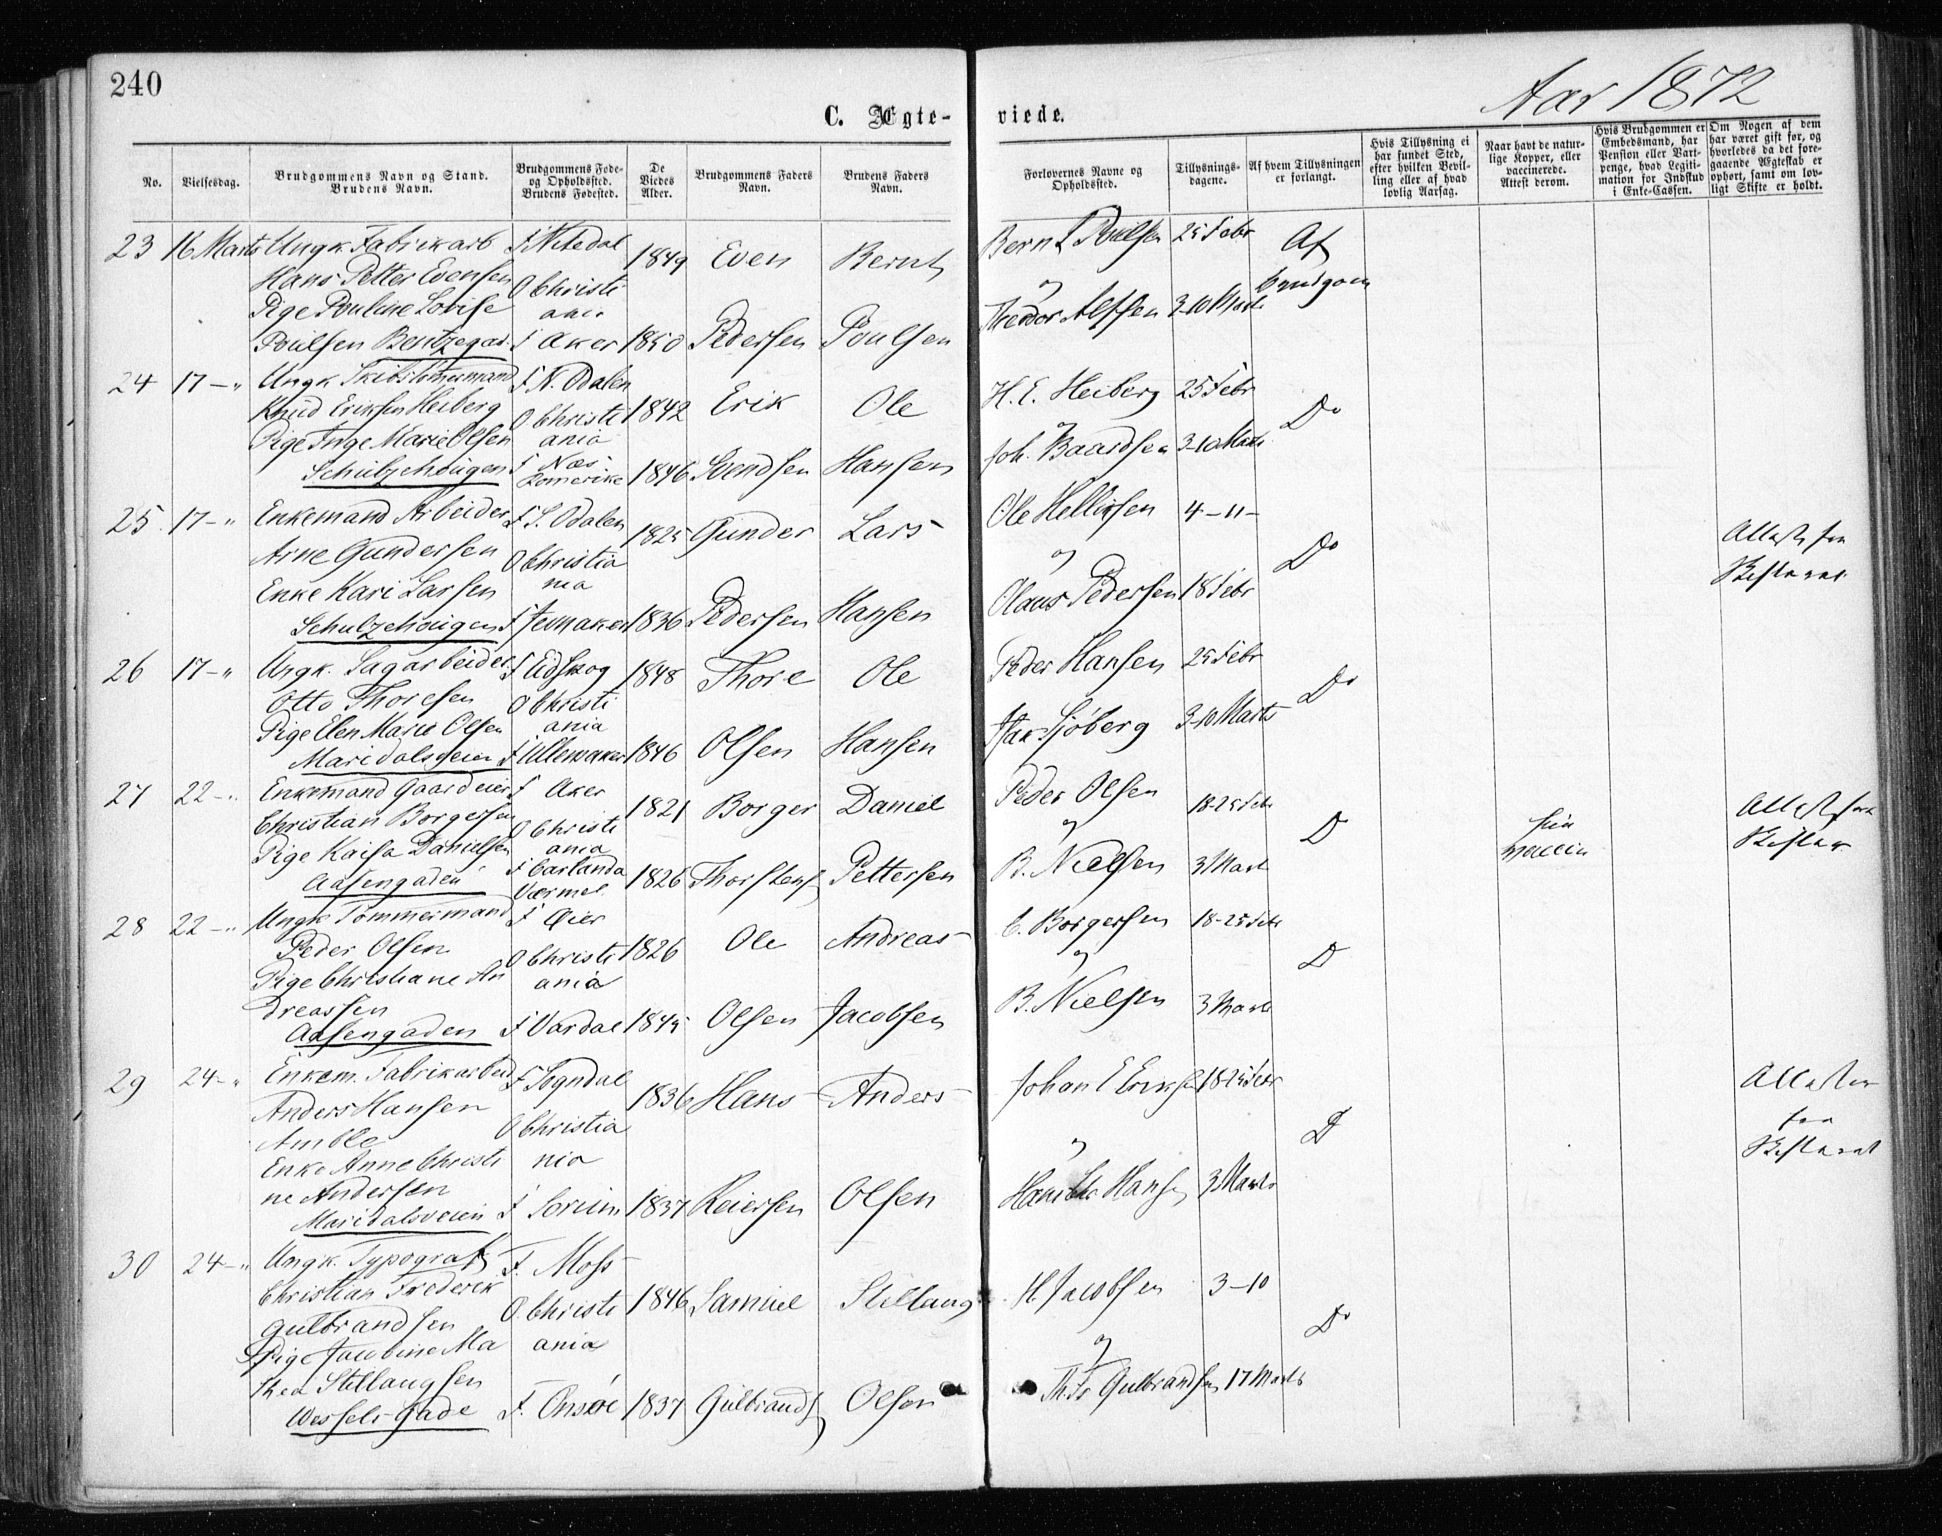 240
Aar 1872
C. Ægte-
viede.
No.
Vielsesdag.
Brudgommens Navn og Stand.
Brudens Navn.
Brudgommens Føde-
og Opholdssted.
Brudens Fødested.
De
Viedes
Alder.
Brudgommens Faders
Navn.
Brudens Faders
Navn.
Forlovernes Navne og
Opholdssted.
Tillysnings-
dagene.
Af hvem Tillysningen
er forlangt.
Hvis Tillysning ei
har fundet Sted,
efter hvilken Bevil-
ling eller af hvad
lovlig Aarsag.
Naar havt de natur-
lige Kopper, eller
vaccinerede.
Attest derom.
Hvis Brudgommen er
Embedsmand, har
Pension eller Vart-
penge, hvad Legiti-
mation for Indskud
i Enke-Cassen.
Om Nogen af dem
har været gift før, og
hvorledes da det fore-
gaaende Ægteskab er
ophørt, samt om lov-
ligt Skifte er holdt.
23 16 Marts Ungk. Fabrikarb F. Nitedal 1849 Even Bernt Bernt Poulsen 25 Febr Af
Hans Petter Evensen O Christi og brudgom
Pige Pouline Lovise ania Theodor Alfsen 3-10 Marts
Poulsen Bentzegad. F Aker 1850 Pedersen Poulsen
24 17 - " Ungk. Skibstømmermand F N. Odalen H. E. Heiberg 25 Febr
Knud Eriksen Heiberg O Christi 1842 Erik Ole og Do
Pige Inge Marie Olsen ania Joh. Baardsen 3-10 Marts
Schultzehougen F Næs Romerike 1846 Svendsen Hansen
25. 17 - " Enkemand Arbeider F S. Odalen 1825 Gunder Lars Ole Hellissen 4 - 11 - Attest fra
Arne Gundersen O Christia og Do Skifteret
Enke Kari Larsen nia Olaus Pedersen 18 Febr
Schultzehougen F Jevnaker 1836 Pedersen Hansen
26 17 - " Ungk. Sagarbeider F Udskog 1848 Thore Ole Peder Hansen 25 Febr Do
Otto Thoresen O Christi
Pige Elen Marie Olsen ania Isak Sjöberg 3-10 Marts
Maridalsveien F Ullensaker 1846 Olsen Hansen
27 22 - " Enkemand Gaardeier F Aker 1821 Borger Daniel Peder Olsen 18-25 Febr Attest fra
Christian Borgersen O Christi og Do Skifteret
Pige Kaisa Danielsen ania B. Nielsen 3 Marts
Aasengaden F Carlanda Værmel. 1826 Thorstens Pettersen
28 22 - " Ungk Tømmermand F Eier C. Borgersen 18-25 Febr
Peder Olsen O Christi 1826 Ole Andreas og Do
Pige Christiane An ania B. Nielsen 3 Marts
dreassen
Aasengaden F Vardal 1845 Olsen Jacobsen
29 24 - " Enkem. Fabrikarbeid F Sogndal 1836 Hans Anders Johan E Eriksen 18-25 Febr Attester
Anders Hansen O Christia og Do fra
Amble nia Skifteret
Enke Anne Christi
ne Andersen Hansen 3 Marts
Maridalsveien F Sørum 1837 Reiersen Olsen
30 24 - " Ungk. Typograf F. Moss
Christian Frederik O. Christi 1846 Samuel Stillaug H. Jacobsen 3-10
Gulbrandsen ania og Do
Pige Jacobine Ma
thea Stillaugsen Ths Gulbrandsen 17 Marts
Wessels Gade F. Onsøe 1837 Gulbrands Olsen